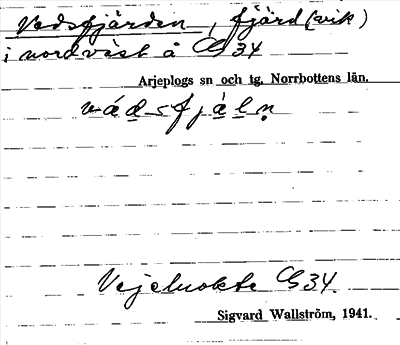 Vedsfjärden, fjärd (vik)
i nordväst å G 34
Arjeplogs sn och tg. Norrbottens län.
vá̱ḏ-sfjà̱ḻṇ
Vejeluokte G 34.
Sigvard Wallström, 1941.